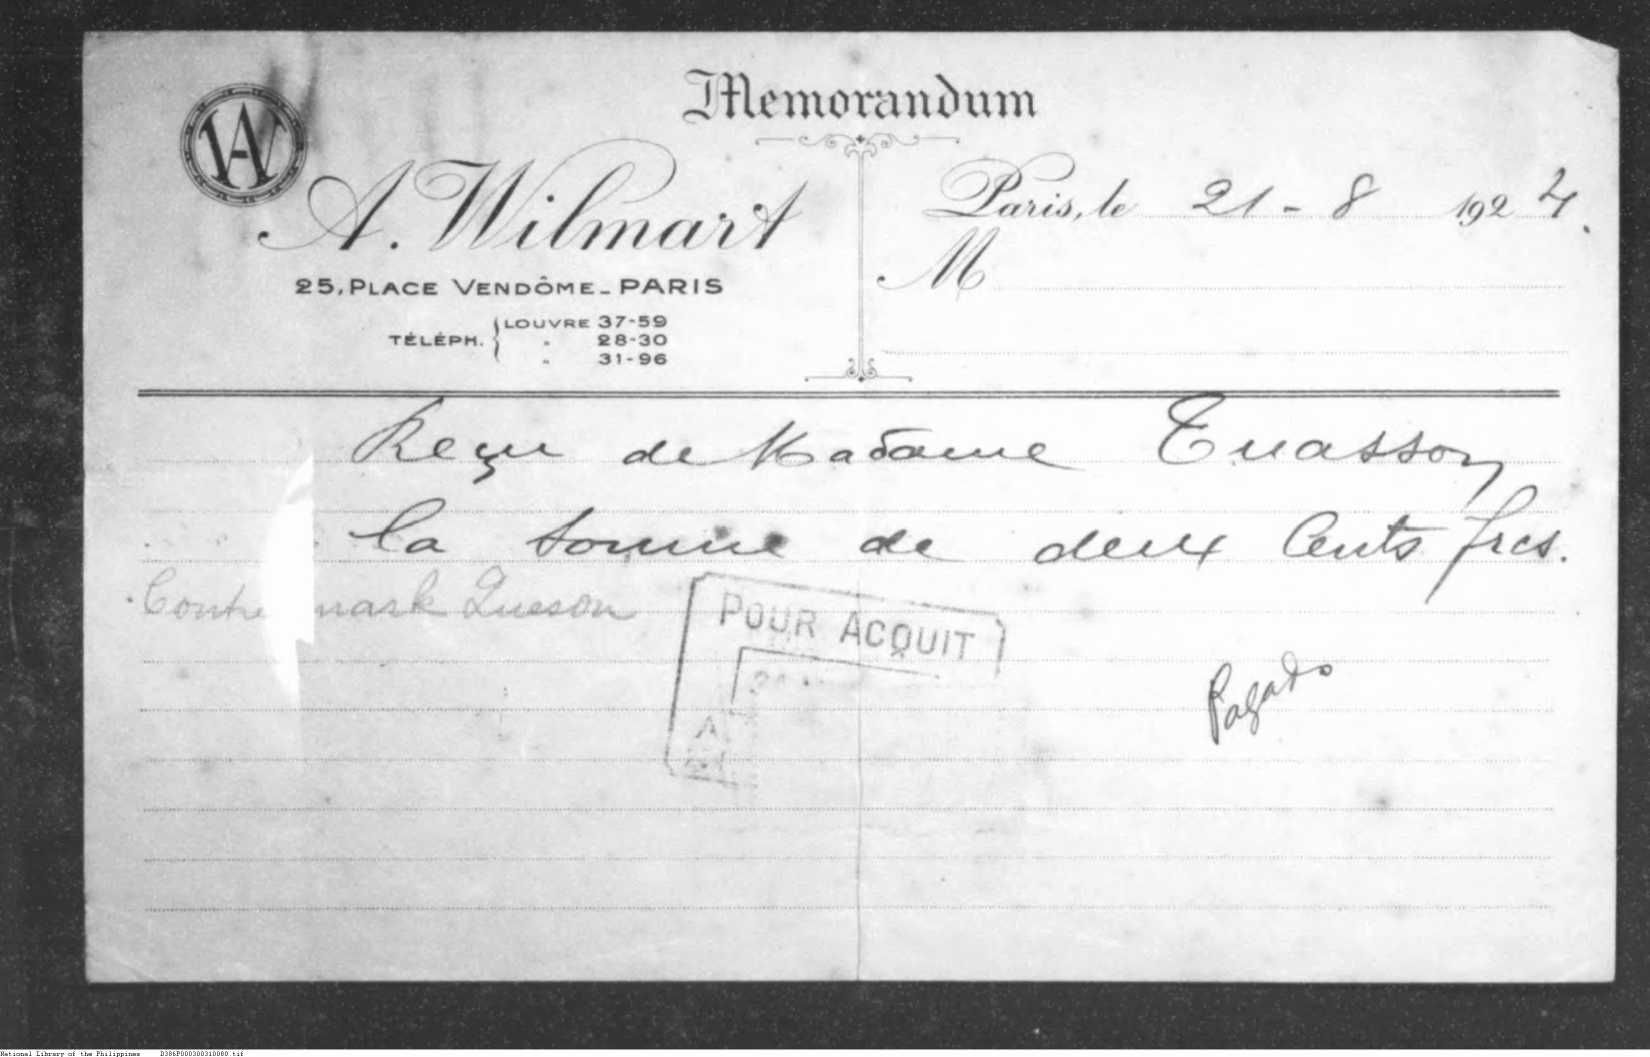 Memorandum
AW
A. Wilmart
25, PLACE VENDÔME_PARIS
TÉLÉPH. { LOUVRE 37-59
" 28-30
" 31-96
Paris, le 21-8 1924.
M
Reçu de Madame Tuasson
la somme de deux Cents frcs.
Contre mark Queson
POUR ACQUIT
A
Pagado
National Library of the Philippines D386P000300310080.tif